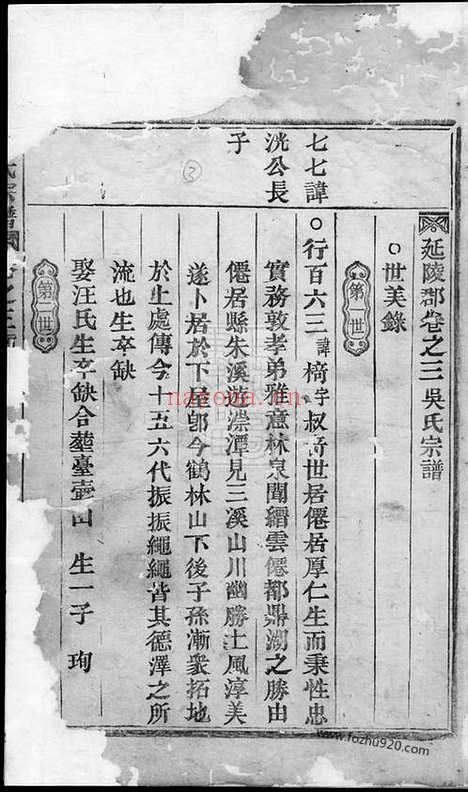 延陵郡卷之三吳氏宗譜
○世美錄
第一世
七七諱
洸公長
子
○行百六三諱 字叔 世居僊居厚仁生而秉性忠
實務敦孝弟雅意林泉聞縉雲僊都鼎湖之勝由
僊居縣朱溪遊 潭見三溪山川幽勝土風淳美
遂卜居於下 今鶴林山下後子孫漸衆拓地
於 處傳今十五六代振振繩繩皆其德澤之所
流也生卒缺
娶汪氏生卒缺合塟臺壺山 生一子 珣
第 世
氏宗譜 卷之三
2
nagoya.cn
www.fozhu920.com